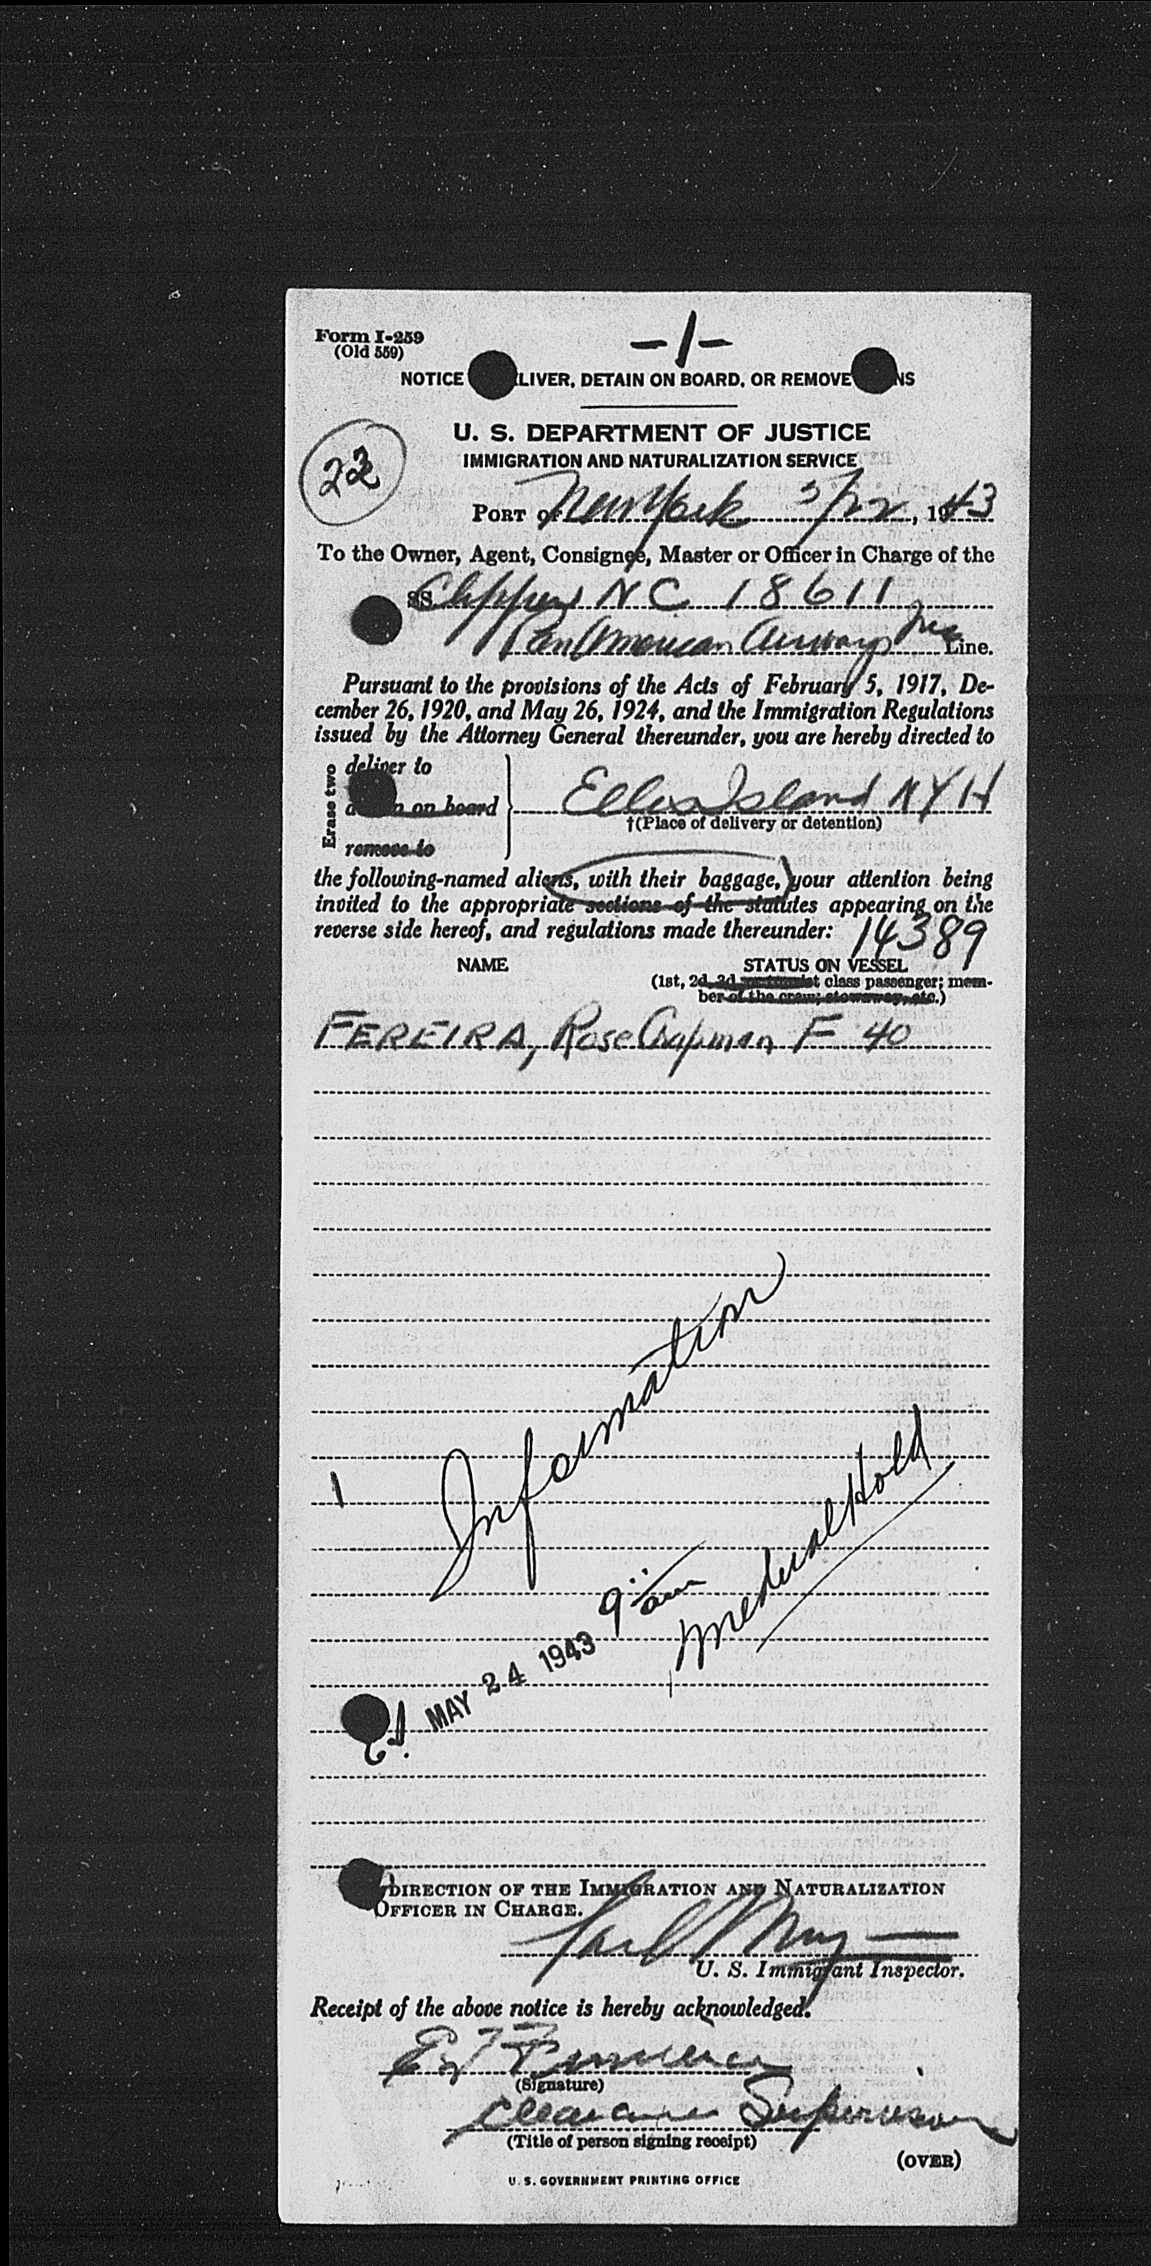 Form I-259
(Old 559)
-1-
NOTICE LIVER, DETAIN ON BOARD, OR REMOVE NS
U. S. DEPARTMENT OF JUSTICE
IMMIGRATION AND NATURALIZATION SERVICE
22
PORT OF New York 5/22, 1943
To the Owner, Agent, Consignee, Master or Officer in Charge of the
SS Clipper NC 18611
Pan American Airways Inc Line.
Pursuant to the provisions of the Acts of February 5, 1917, De-
cember 26, 1920, and May 26, 1924, and the Immigration Regulations
issued by the Attorney General thereunder, you are hereby directed to
Erase two
deliver to
n on board
remove to
Ellis Island NYH
†(Place of delivery or detention)
the following-named aliens, with their baggage, your attention being
invited to the appropriate sections of the statutes appearing on the
reverse side hereof, and regulations made thereunder: 14389
NAME STATUS ON VESSEL
(1st, 2d, 3d, or tourist class passenger; mem-
ber of the crew; stowaway, etc.)
FEREIRA, Rose Chapman F 40
Information
1
Medical Hold
9 am
MAY 24 1943
DIRECTION OF THE IMMIGRATION AND NATURALIZATION
OFFICER IN CHARGE.
U. S. Immigrant Inspector.
Receipt of the above notice is hereby acknowledged.
(Signature)
Clearance Supervisor
(Title of person signing receipt)
(OVER)
U. S. GOVERNMENT PRINTING OFFICE